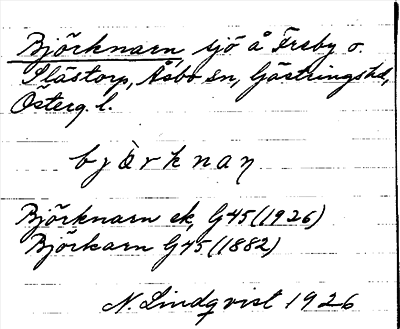 Björknarn sjö å Freby o.
Slästorp, Åsbo sn, Göstringshd,
Österg. l.
björknaɳ
Björknarn ek, G45 (1926)
Björkarn G45 (1882)
N. Lindqvist 1926